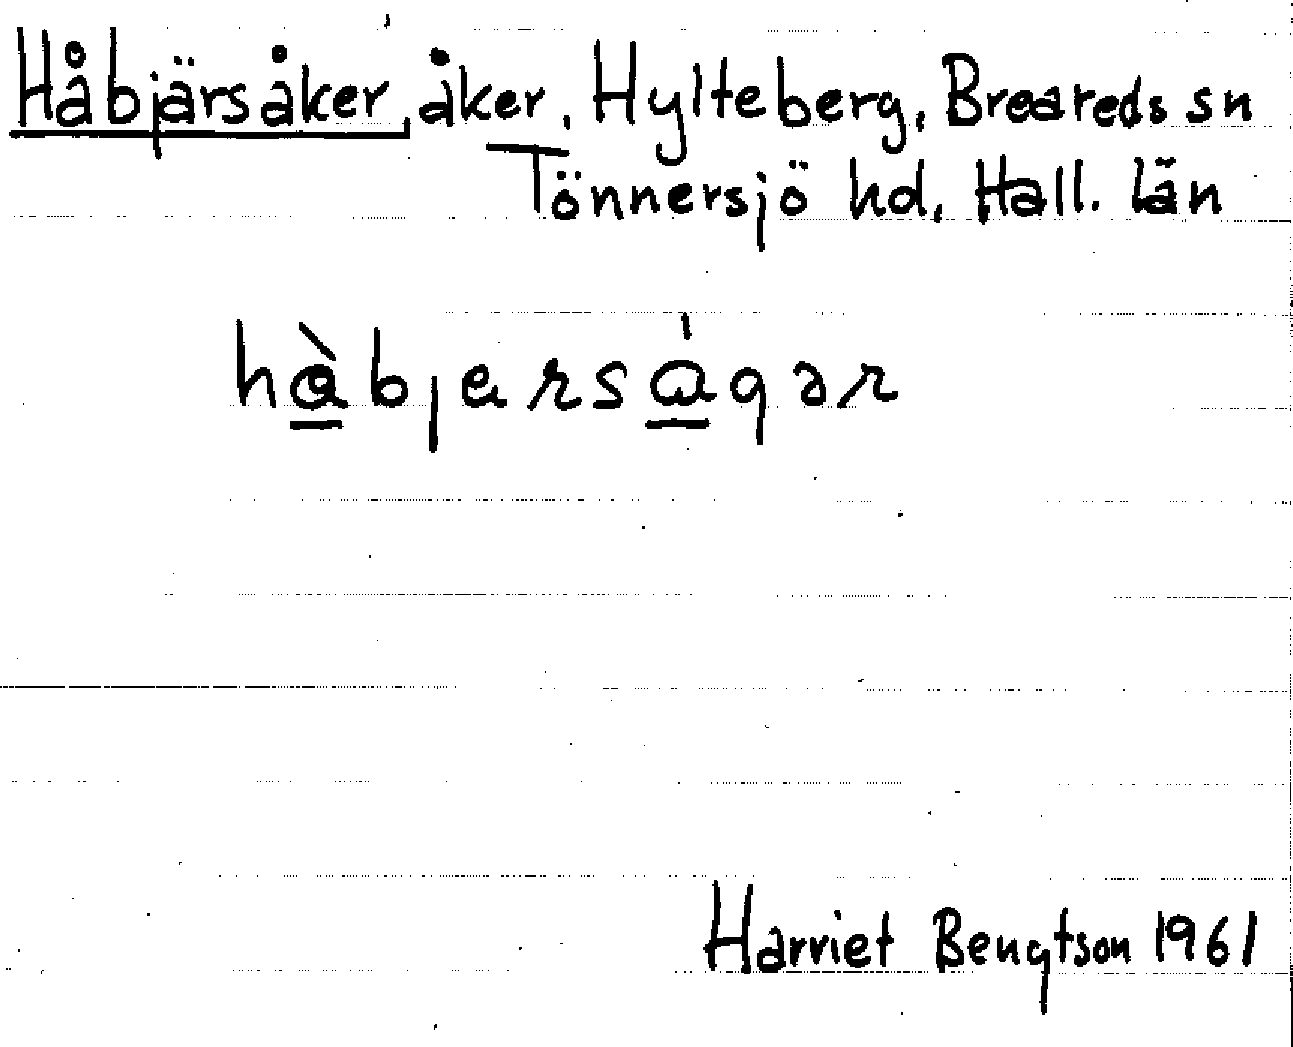 Håbjärsåker, åker, Hylteberg, Breareds sn
Tönnersjö hd, Hall. län
hàbjerságər
Harriet Bengtson 1961